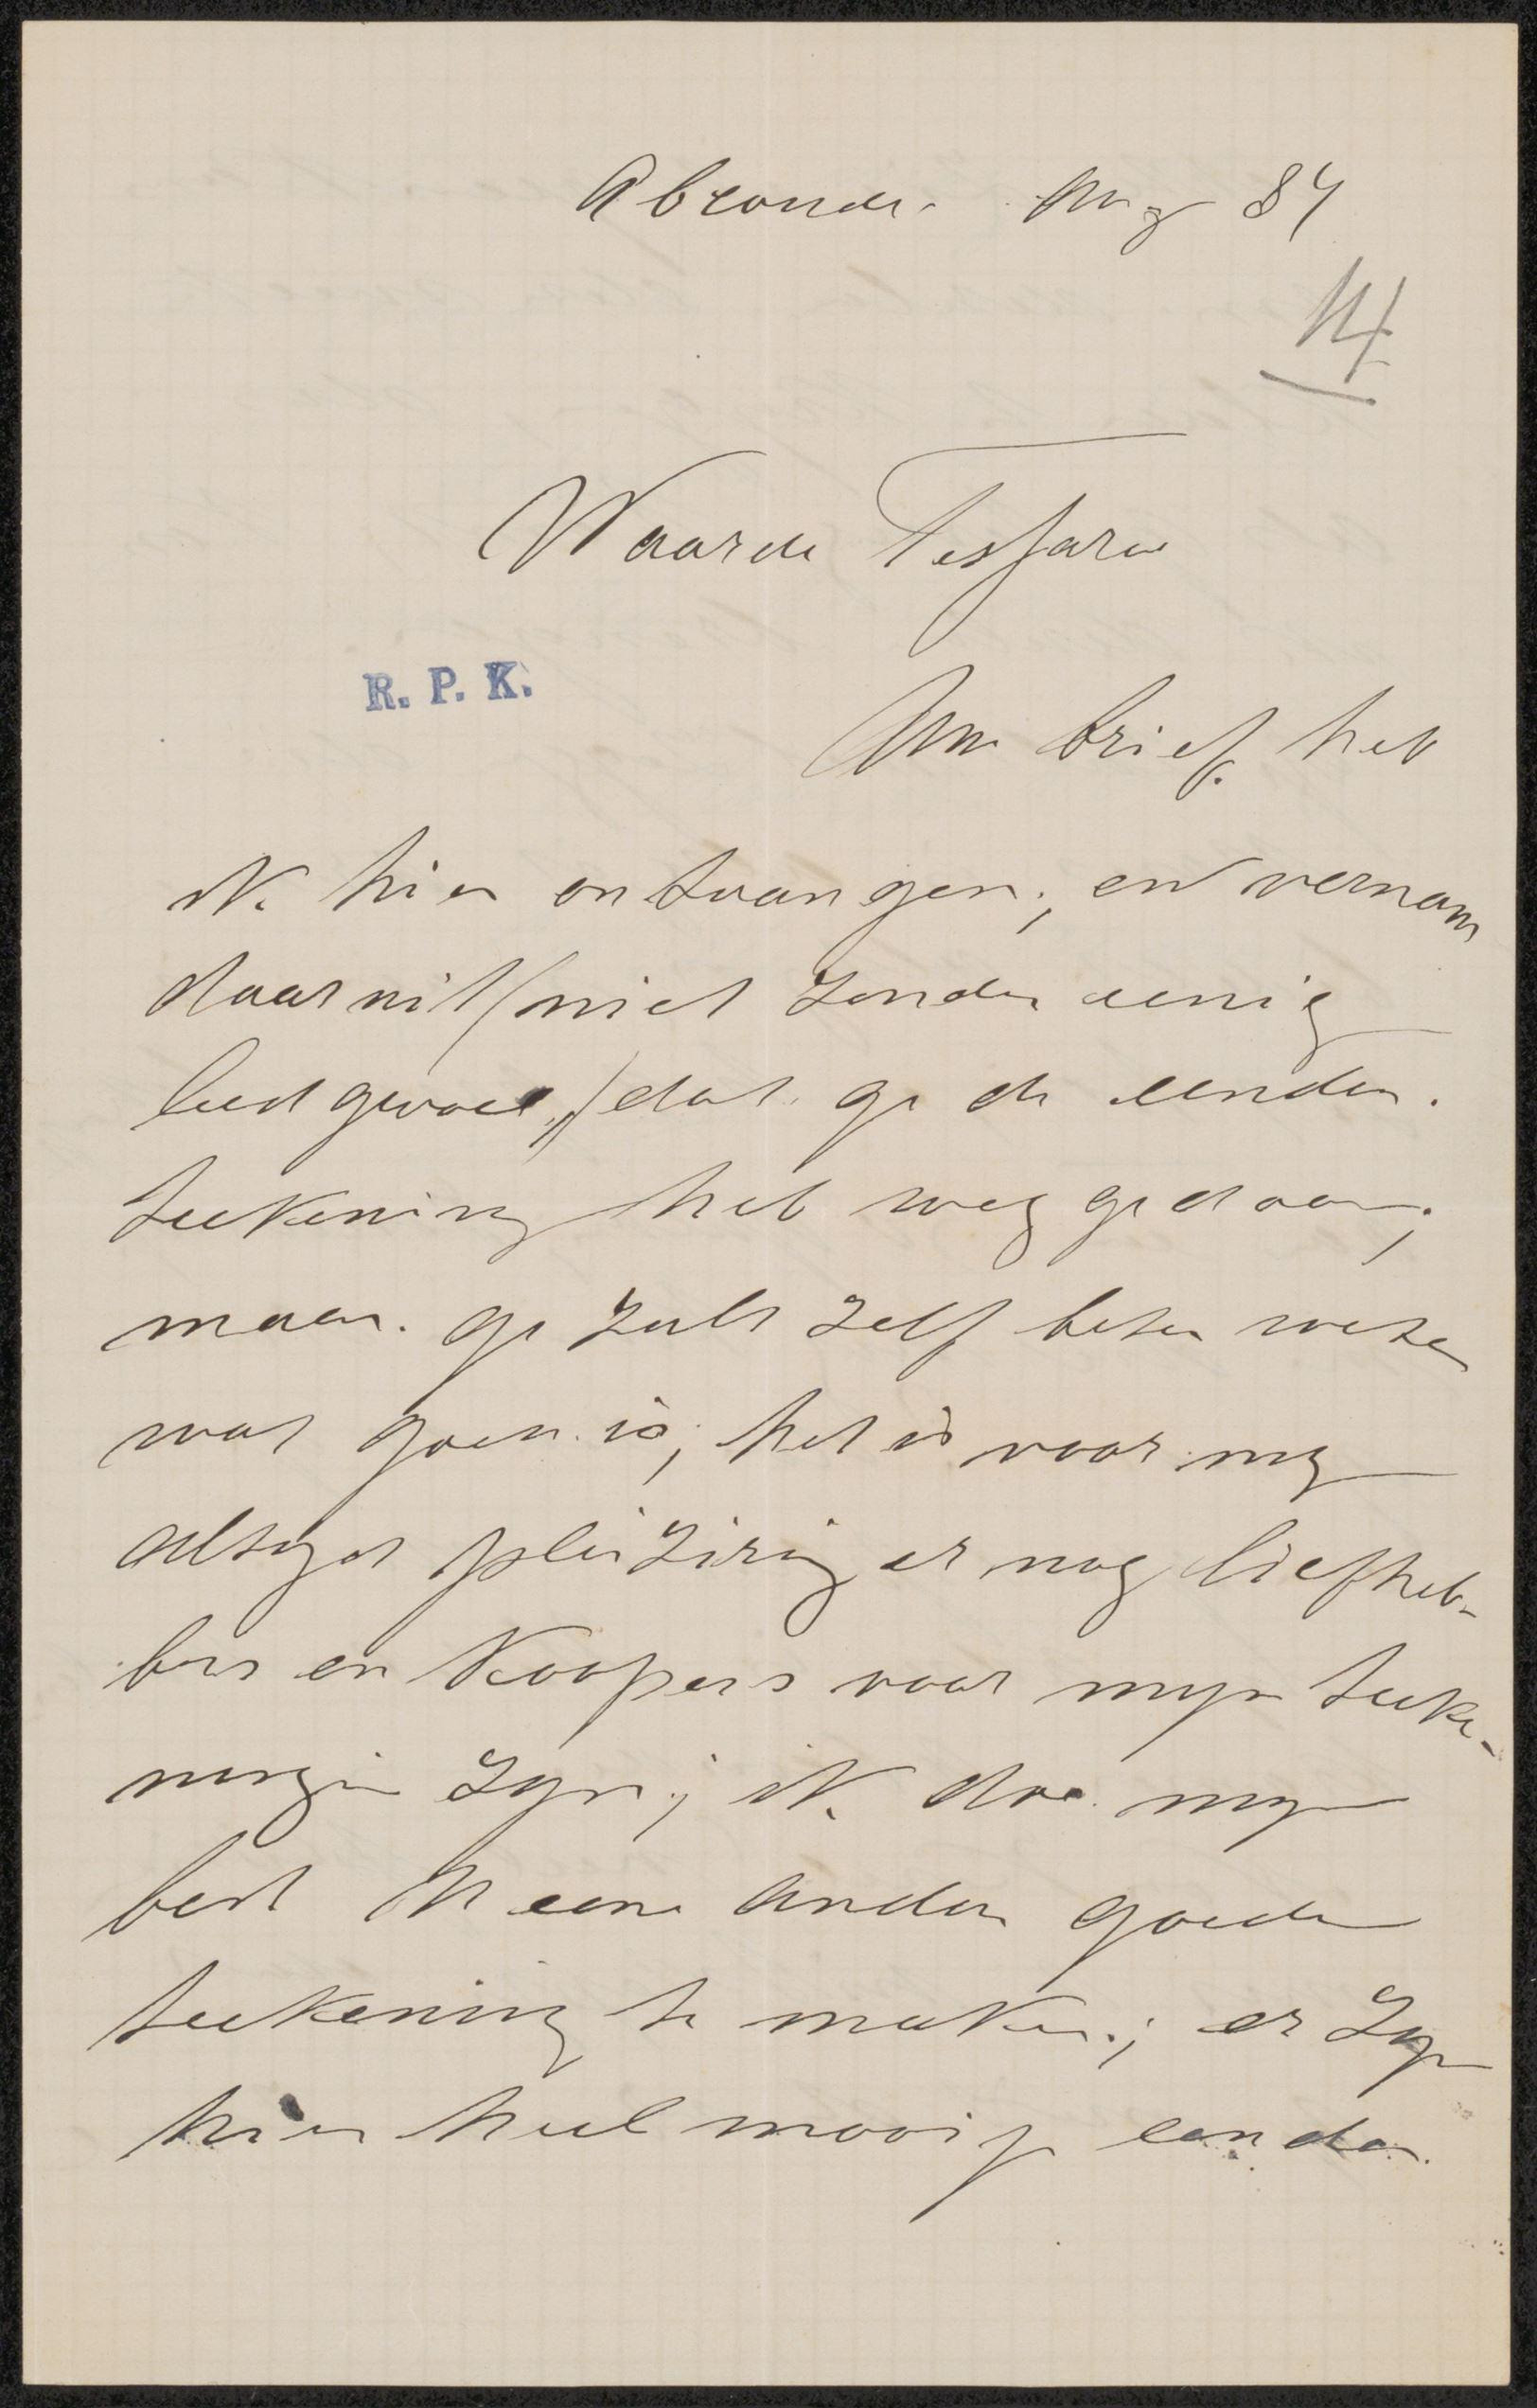 Abcoude. Aug 84
14
Waarde Tersteeg
R. P. K.
Uw brief heb
ik hier ontvangen; en vernam
daaruit (niet zonder eenig
leedgevoel,) dat ge de eenden.
teekening heb weg gedaan;
maar. ge zult zelf beter weten
wat goed is; het is voor mij
altijd pleizirig er nog liefheb-
bers en koopers voor mijn teeke-
ningen zijn; ik doe mijn
best U eene andere goede
teekening te maken; er zijn
hier heel mooije eenden.